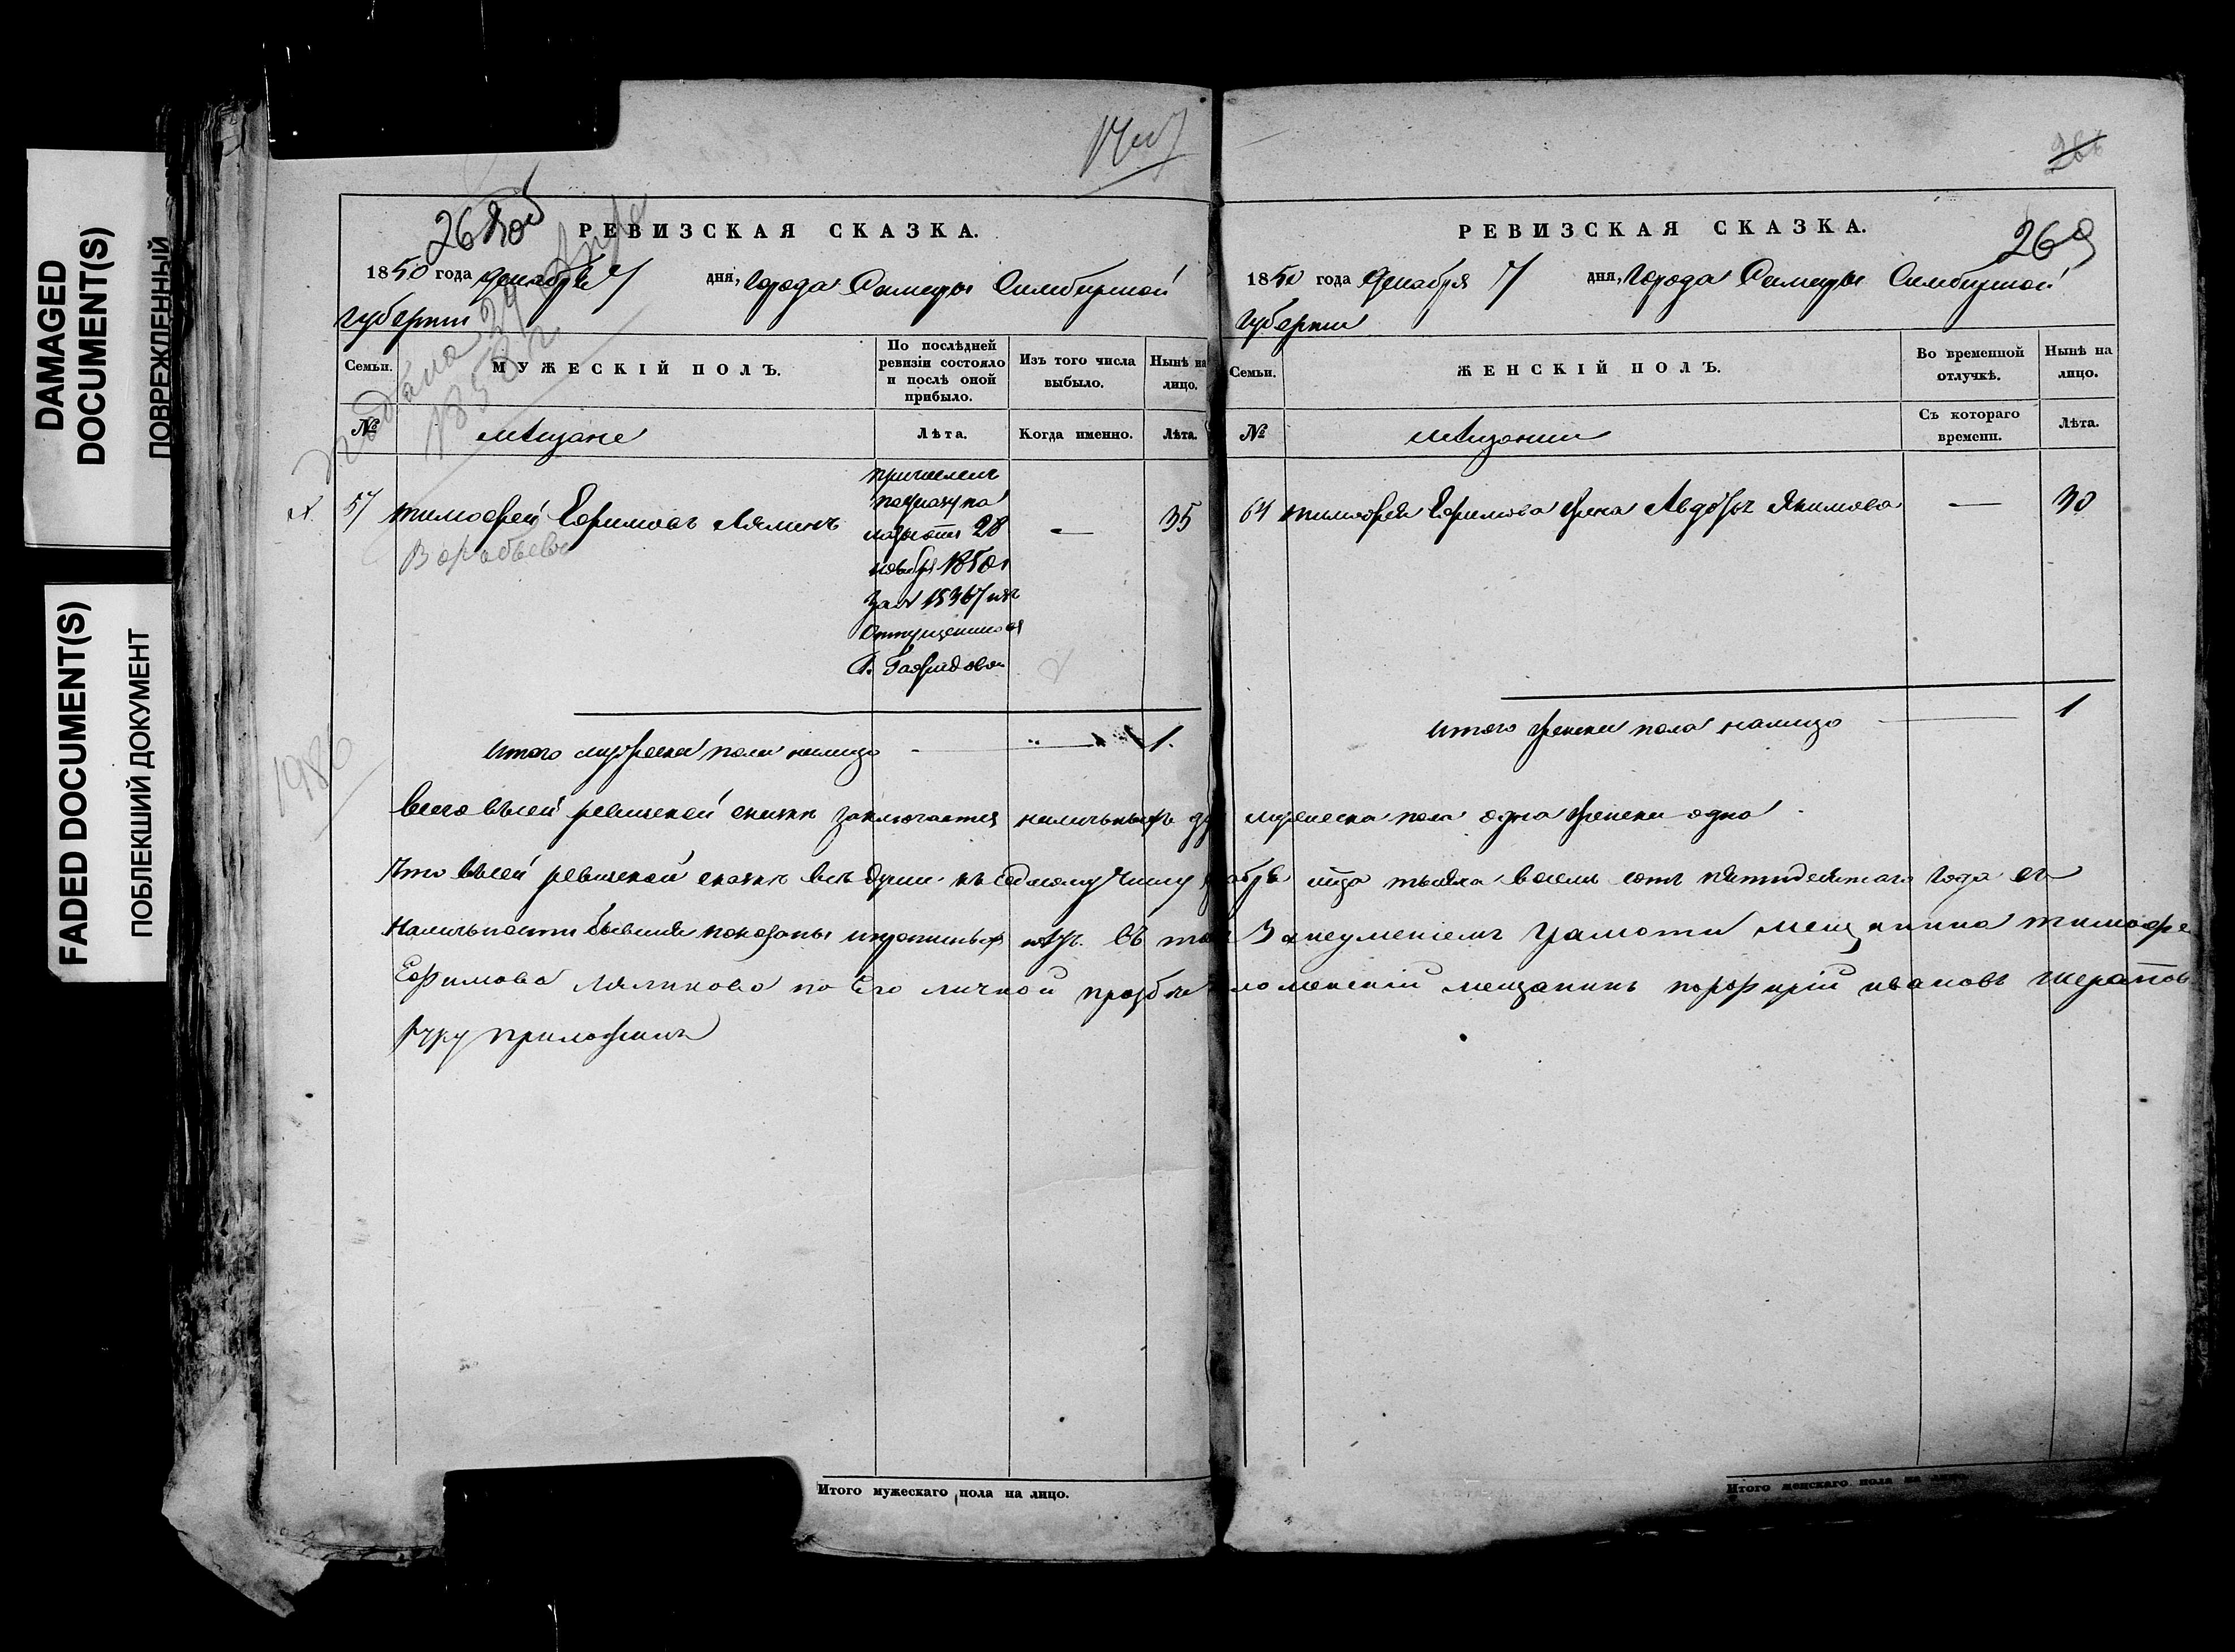 DAMAGED
DOCUMENT(S)
ПОВРЕЖДЕННЫЙ
FADED DOCUMENT(S)
ПОБЛЕКШИЙ ДОКУМЕНТ
1986
РЕВИЗСКАЯ СКАЗКА.
1850 года декабря 7 дня, Города Самары Симбирской
Губернии
Семьи.
МУЖЕСКІЙ ПОЛЪ.
По послѣдней
ревизіи состояло
и послѣ оной
прибыло.
Изъ того числа
выбыло.
Нынѣ на
лицо.
№
мѣщане
Лѣта.
Когда именно.
Лѣта.
57 тимофей Ефимовъ Лялинъ
Воробьева
причислен
по указу
палаты 28
ноября 1850
за № 15367 изъ
отпущенных
—
35
итого мужеска пола налицо 1.
РЕВИЗСКАЯ СКАЗКА.
269
1850 года декабря 7 дня, Города Самары Симбирской
Губернии
Семьи.
ЖЕНСКІЙ ПОЛЪ.
Во временной
отлучкѣ.
Нынѣ на
лицо.
№
мѣщанки
Съ котораго
времени.
Лѣта.
тимофея Ефимова жена Авдотья Якимова — 30
итого женска пола налицо 1
Всего въ сей ревиской сказке заключается наличныхъ мужеска пола одна женска одна
Что в сей ревиской сказке все души къ седмому числу декабря тысяча восемь сотъ пятидесятаго года въ
наличности бывшия показаны и прописныхъ нѣтъ. Въ том За неумениемъ грамоти мещанина тимофе
Ефимова по Его личной прозбе мещанинъ порфирій ивановъ
руку приложилъ
Итого мужескаго пола на лицо.
Итого женскаго пола на лицо.